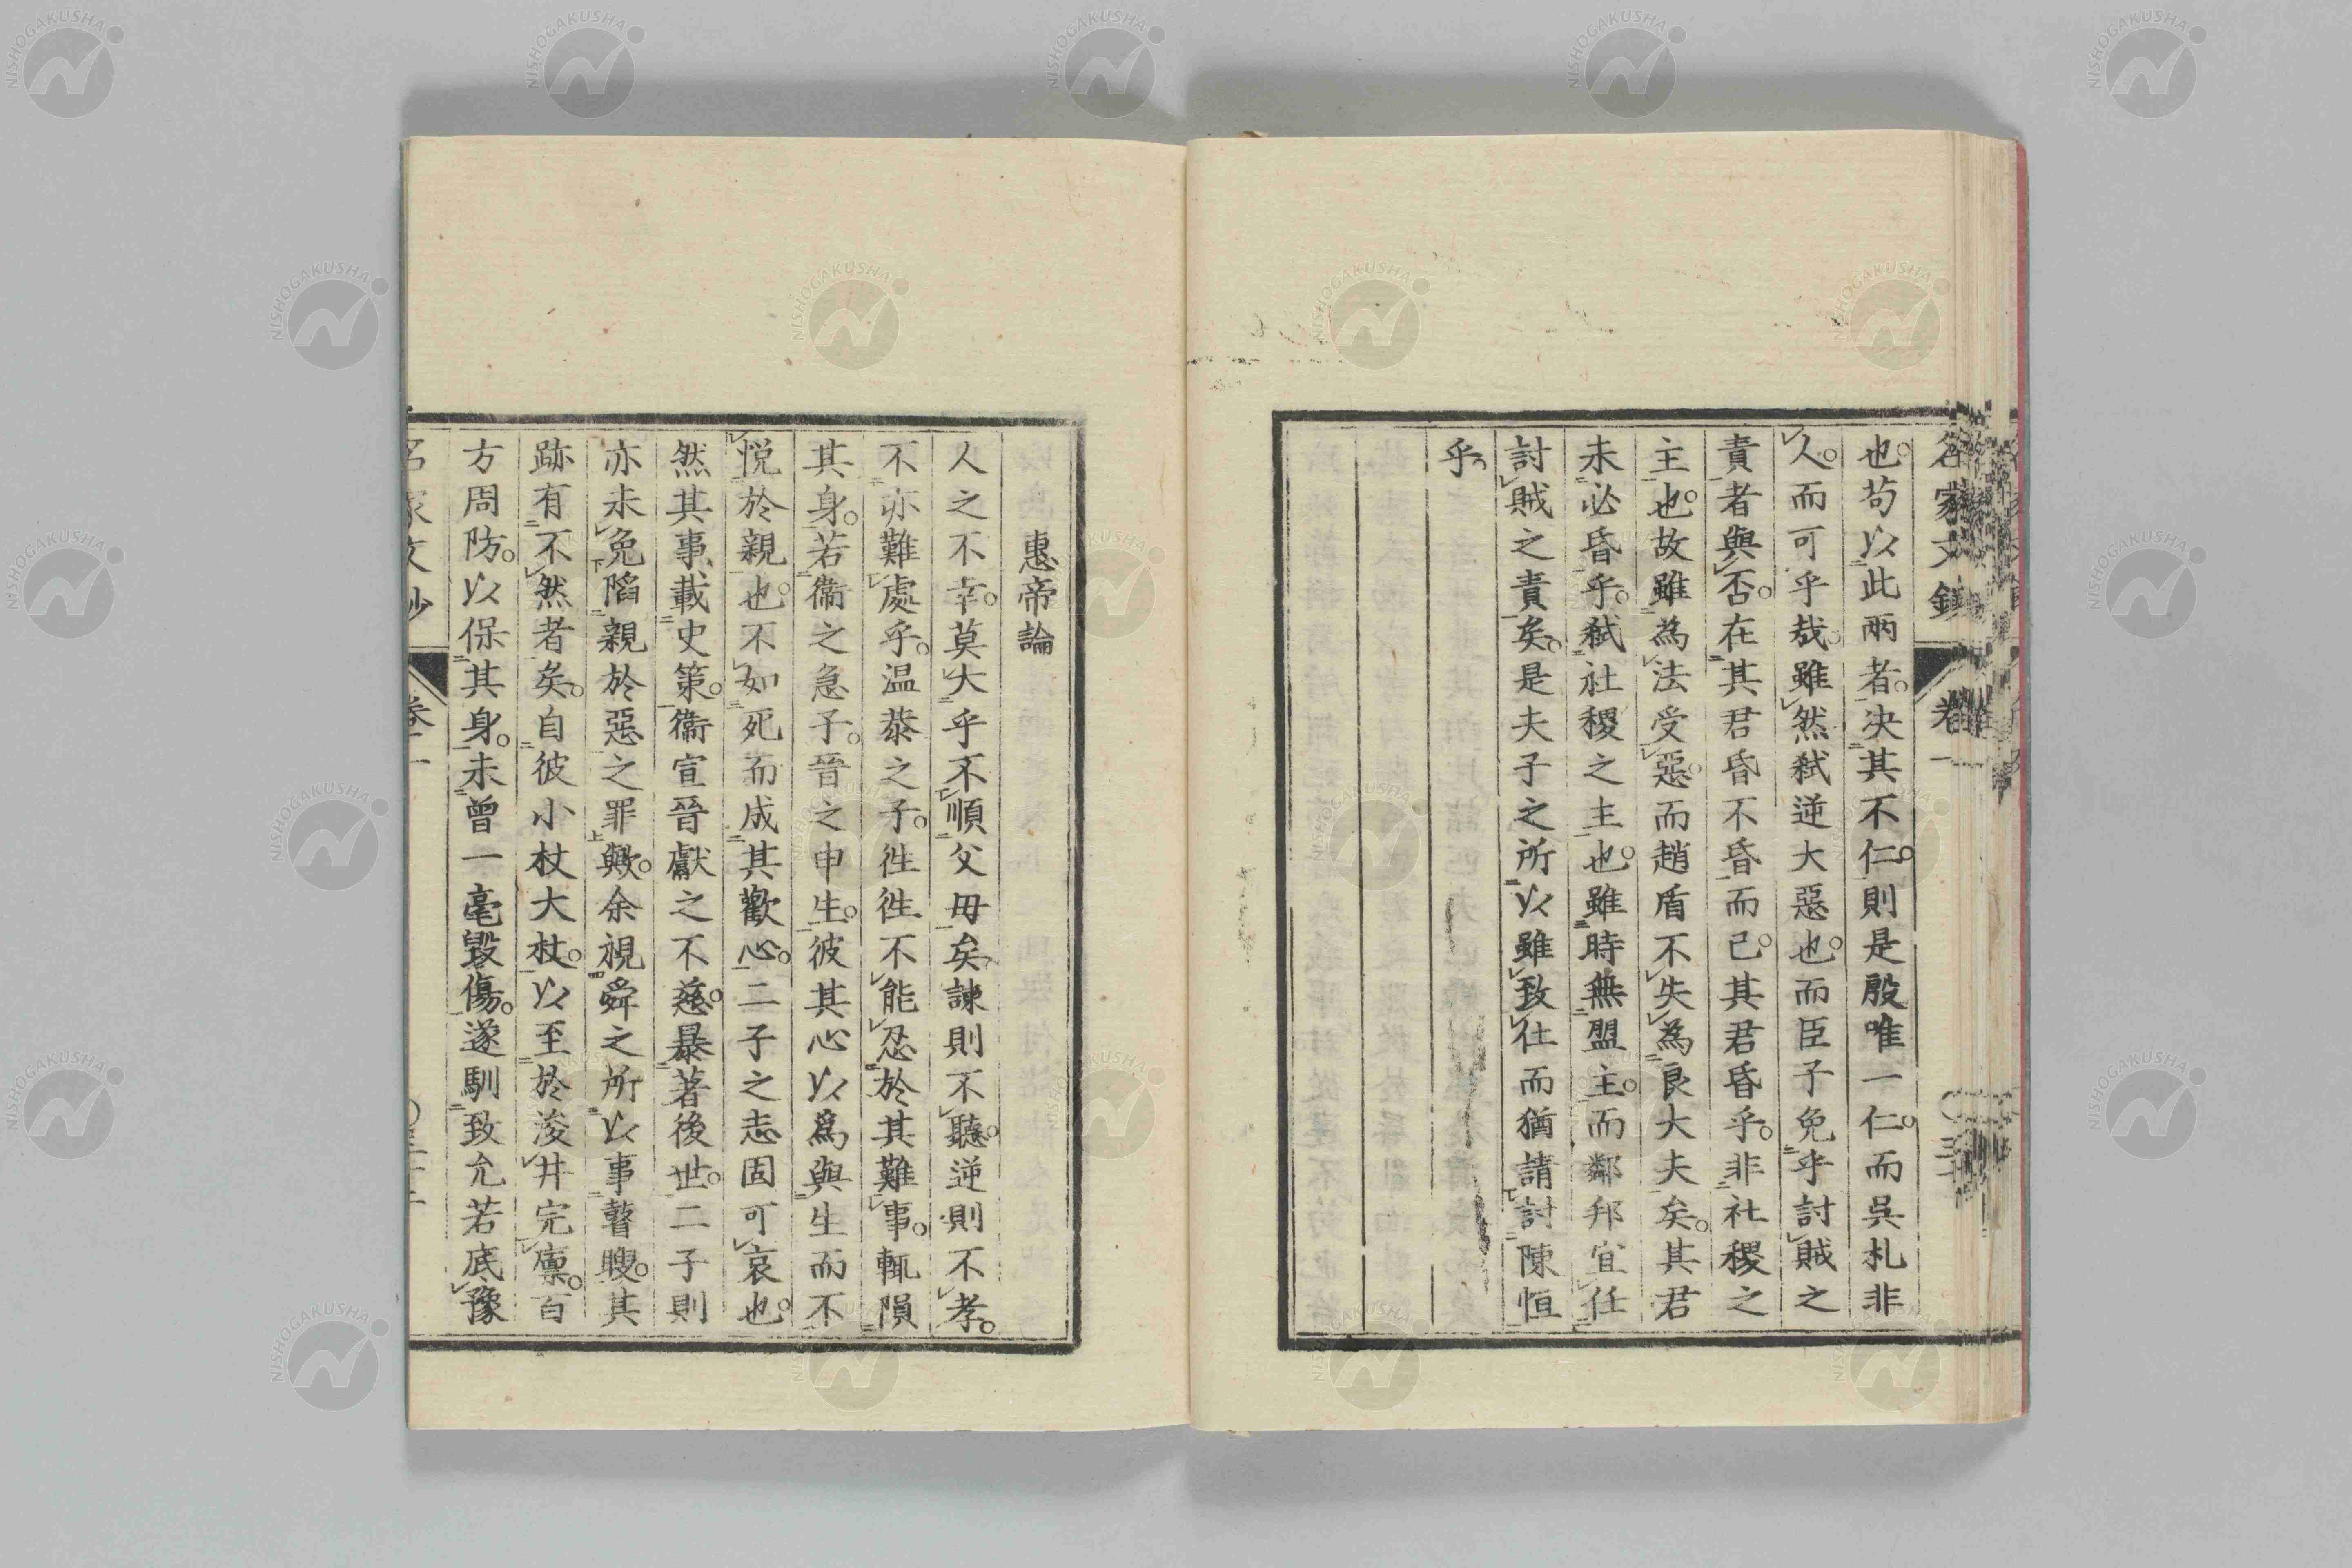 名家文鈔 卷一
也。苟以此兩者。决其不仁。則是殷唯一仁。而吳札非
人。而可乎哉。雖然弑逆大惡也。而臣子免乎討賊之
責者與否。在其君昏不昏而已。其君昏乎。非社稷之
主也。故雖為法受惡。而趙盾不失為良大夫矣。其君
未必昏乎。弑社稷之主也。雖時無盟主。而鄰邦宜任
討賊之責矣。是夫子之所以雖致仕而猶請討陳恒
乎。
惠帝論
人之不幸。莫大乎不順父母矣。諫則不聽。逆則不孝。
不亦難處乎。温恭之子。徃徃不能忍於其難事。輒隕
其身。若衞之急子。晉之申生。彼其心以爲與生而不
悦於親也。不如死而成其歡心。二子之志固可哀也。
然其事載史策。衞宣晉獻之不慈。暴著後世。二子則
亦未免陷親於惡之罪歟。余視舜之所以事瞽瞍。其
跡有不然者矣。自彼小杖大杖。以至於浚井完廩。百
方周防。以保其身。未曾一毫毀傷。遂馴致允若底豫
名家文鈔 卷一
NISHOGAKUSHA